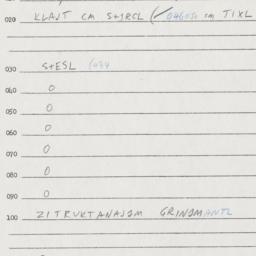 020 KLAJT CM S+IRCL (✓046050 cm TIXL
030 S+ESL (034
040 O
050 O
060 O
070 O
080 O
090 O
100 ZITRUKTANAJOM GRINDMANTL